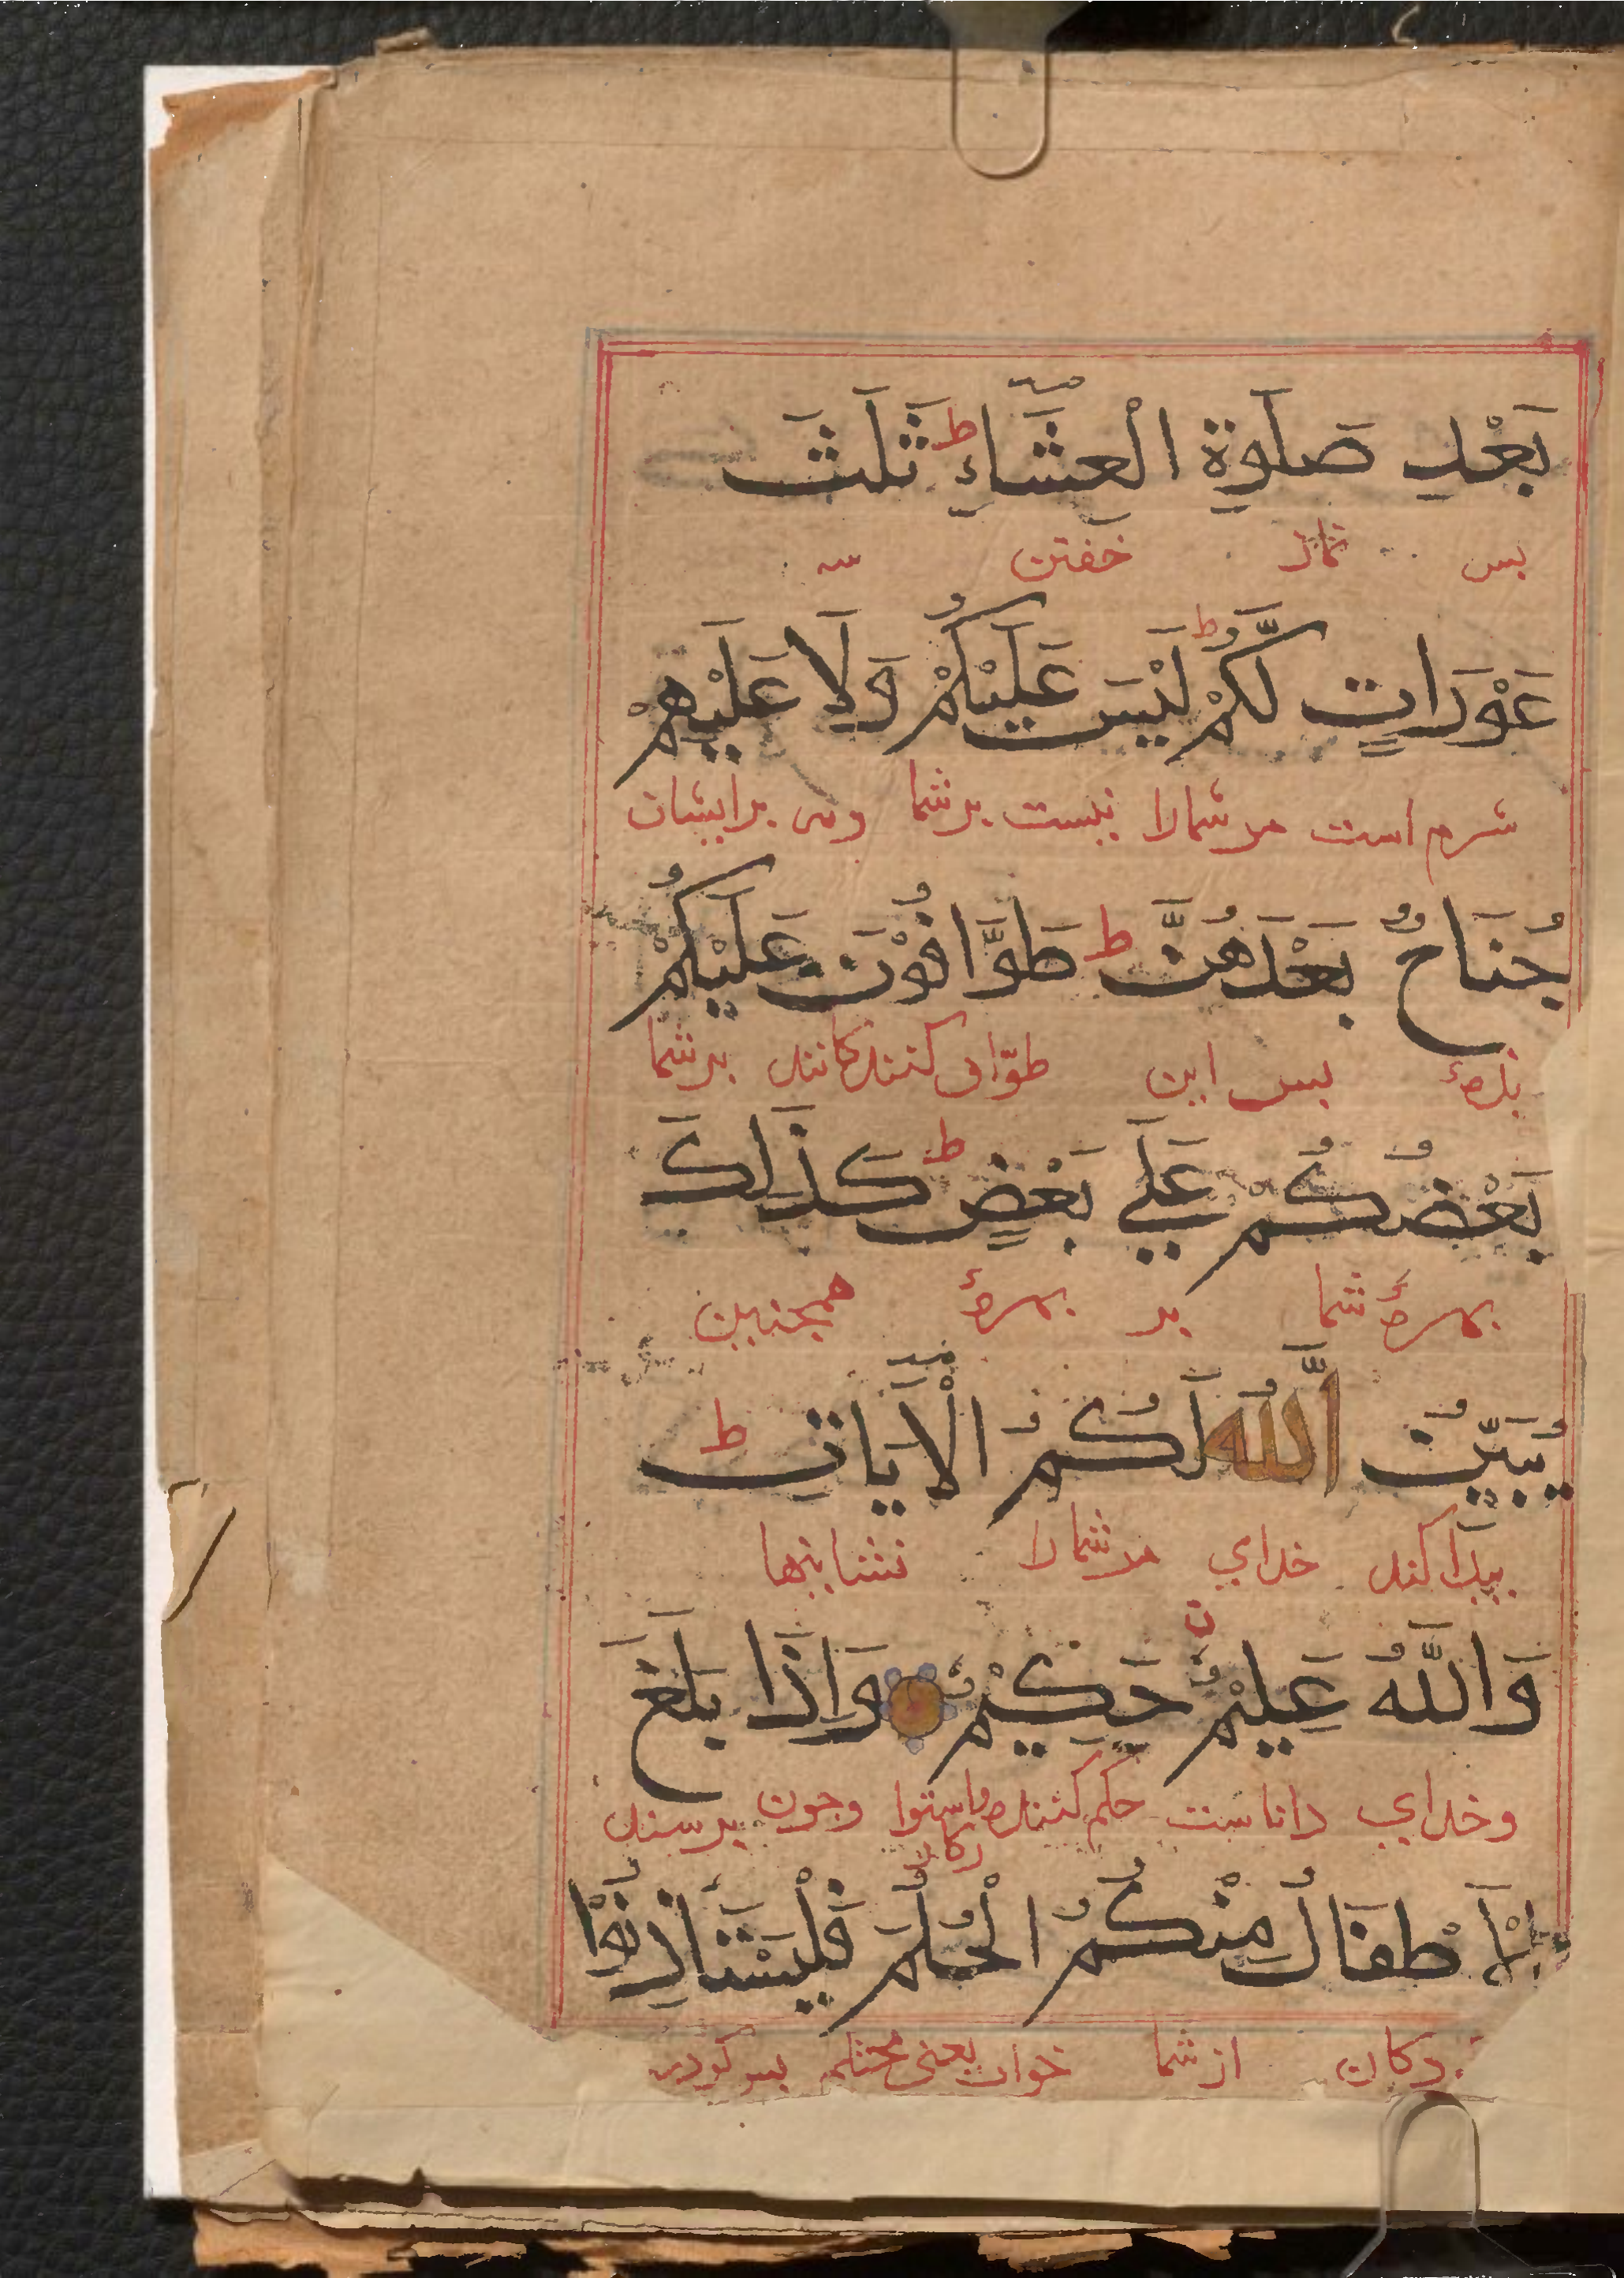 بَعْدِ صَلَوةِ الْعِشَّاءِ ط ثَلَثَ
بس نماز خفتن سه
عَوْرَاتٍ لَّكُمْ ط لَيْسَ عَلَيْكُمْ وَلَا عَلَيْهِمْ
شرم است مرشمارا نيست برشما ونى برايشان
جُنَاحٌ بَعْدَهُنَّ ط طَوَّافُوْنَ عَلَيْكُمْ
بزهٔ بس اين طوّاف كنندكانند برشما
بَعْضُكُمْ عَلَي بَعْضٍ ط كَذَلِكَ
بهرهٔ شما بر بهرهٔ همجنين
يُبَيِّنُ اللَّهُ لَكُمُ الْآيَاتِ ط
بيداكند خداي مرشمارا نشانيها
وَاللَّهُ عَلِيْمٌ حَكِيْمٌ وَاِذَا بَلَغَ
وخداي داناست حكم كننده واستوار وجون برسند
الْأَطْفَالُ مِنْكُمُ الْحُلُمَ فَلْيَسْتَأْذِنُوْا
كان ازشما خواب يعنى محتلم بس